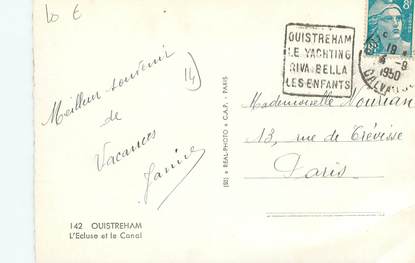 10 €
Meilleur souvenir
de
Vacances
Janine
14
142 OUISTREHAM
L'Ecluse et le Canal
REAL-PHOTO • C.A.P. - PARIS
OUISTREHAM
LE YACHTING
RIVA-BELLA
LES ENFANTS
18
4-8
1950
CALVADOS
8F
Mademoiselle
13, rue de Trévisse
Paris